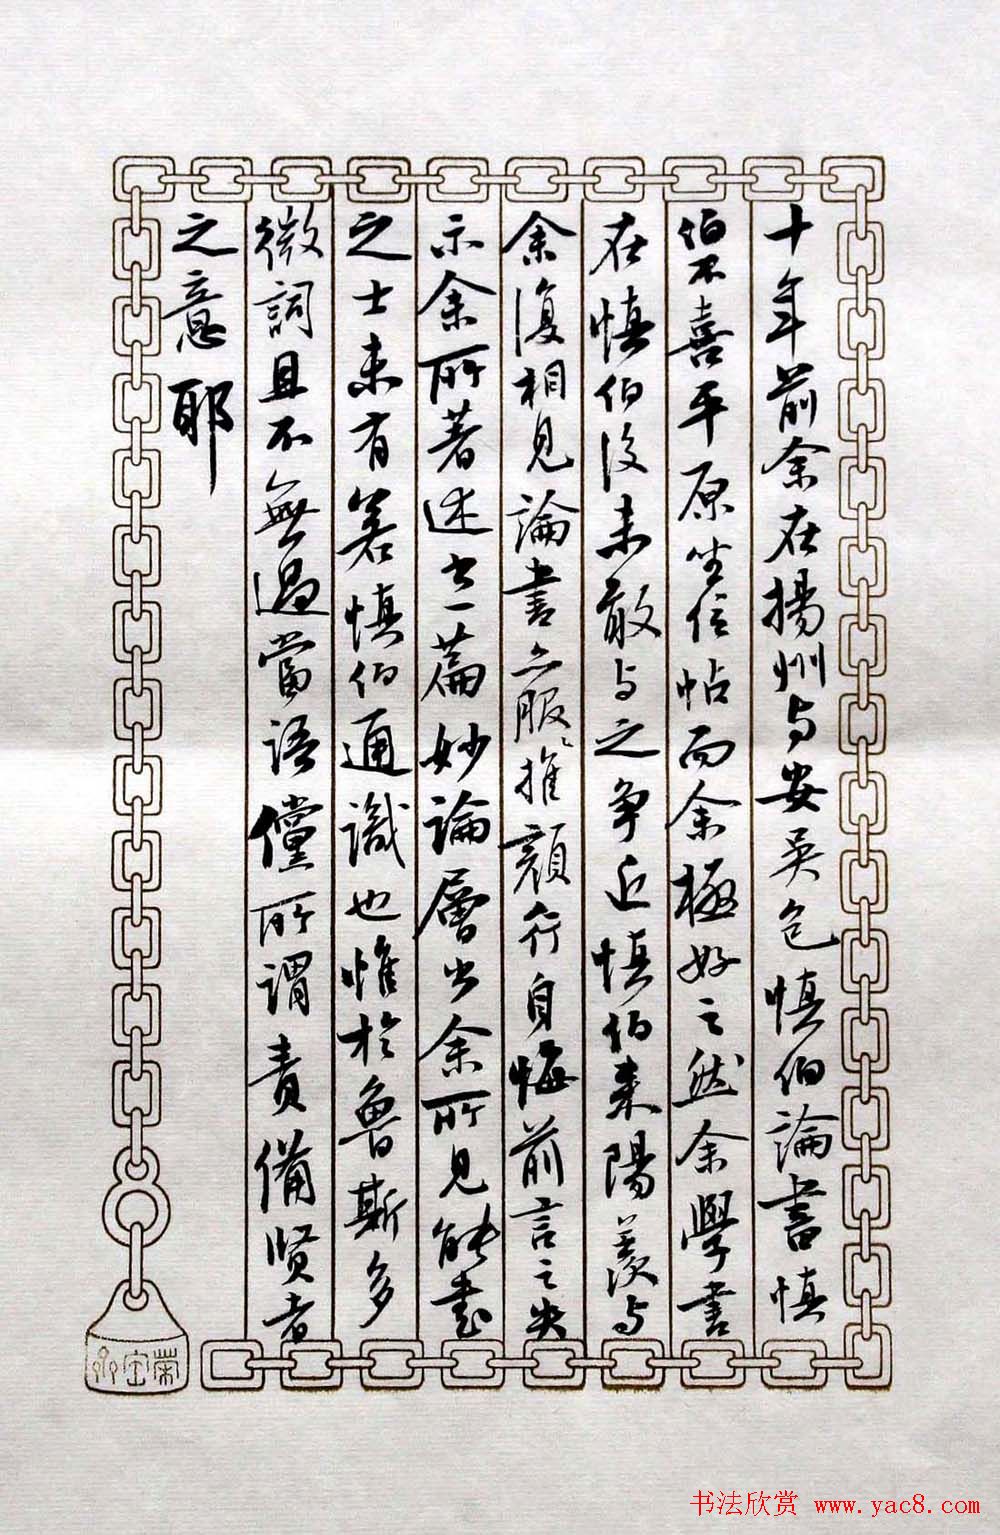 十年前余在揚州与安吳包慎伯論書慎
伯不喜平原坐位帖而余極好之然余學書
在慎伯後未敢与之爭近慎伯来陽羨与
余復相見論書亦服推顏行自悔前言之失
示余所著述書一篇妙論層出余所見能書
之士未有若慎伯通識也惟於魯斯多
微詞且不無過當語儻所謂責備賢者
之意耶
榮宝
书法欣赏 www.yac8.com